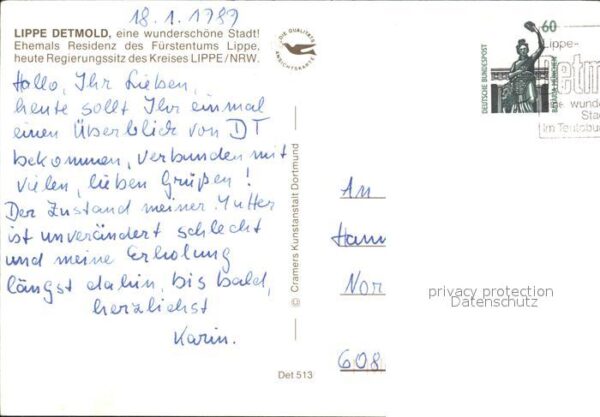 18.1.1989
LIPPE DETMOLD, eine wunderschöne Stadt!
Ehemals Residenz des Fürstentums Lippe,
heute Regierungssitz des Kreises LIPPE/NRW.
DIE QUALITÄTS
ANSICHTSKARTE
Hallo, Ihr Lieben,
heute sollt Ihr einmal
einen Überblick von DT
bekommen, verbunden mit
vielen, lieben Grüßen!
Der Zustand meiner Mutter
ist unverändert schlecht
und meine Erholung
längst dahin, bis bald,
herzlichst
Karin.
Det 513
© Cramers Kunstanstalt Dortmund
60
DEUTSCHE BUNDESPOST
BAVARIA MÜNCHEN
Lippe-
Detm
eine wunde
Stad
Im Teutobur
An
Hann
Nor
608
privacy protection
Datenschutz